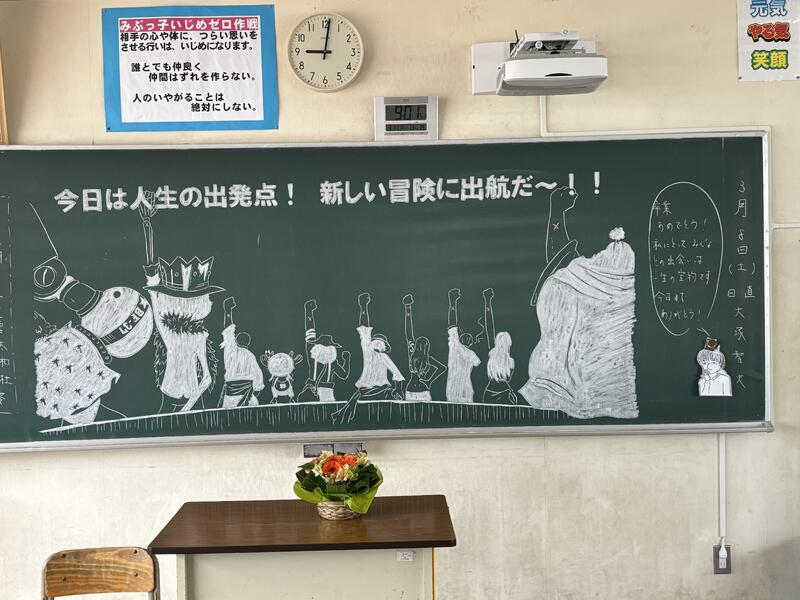 みぶっ子いじめゼロ作戦
相手の心や体に、つらい思いを
させる行いは、いじめになります。
誰とでも仲良く
仲間はずれを作らない。
人のいやがることは
絶対にしない。
12
1
2
3
4
5
6
7
8
9
10
11
元気
やる気
笑顔
9:01
今日は人生の出発点！ 新しい冒険に出航だ～！！
BF-37
卒業
おめでとう！
私にとってみんな
との出会いは
一生の宝物です
今日まで
ありがとう！
3月8日(土)
日直